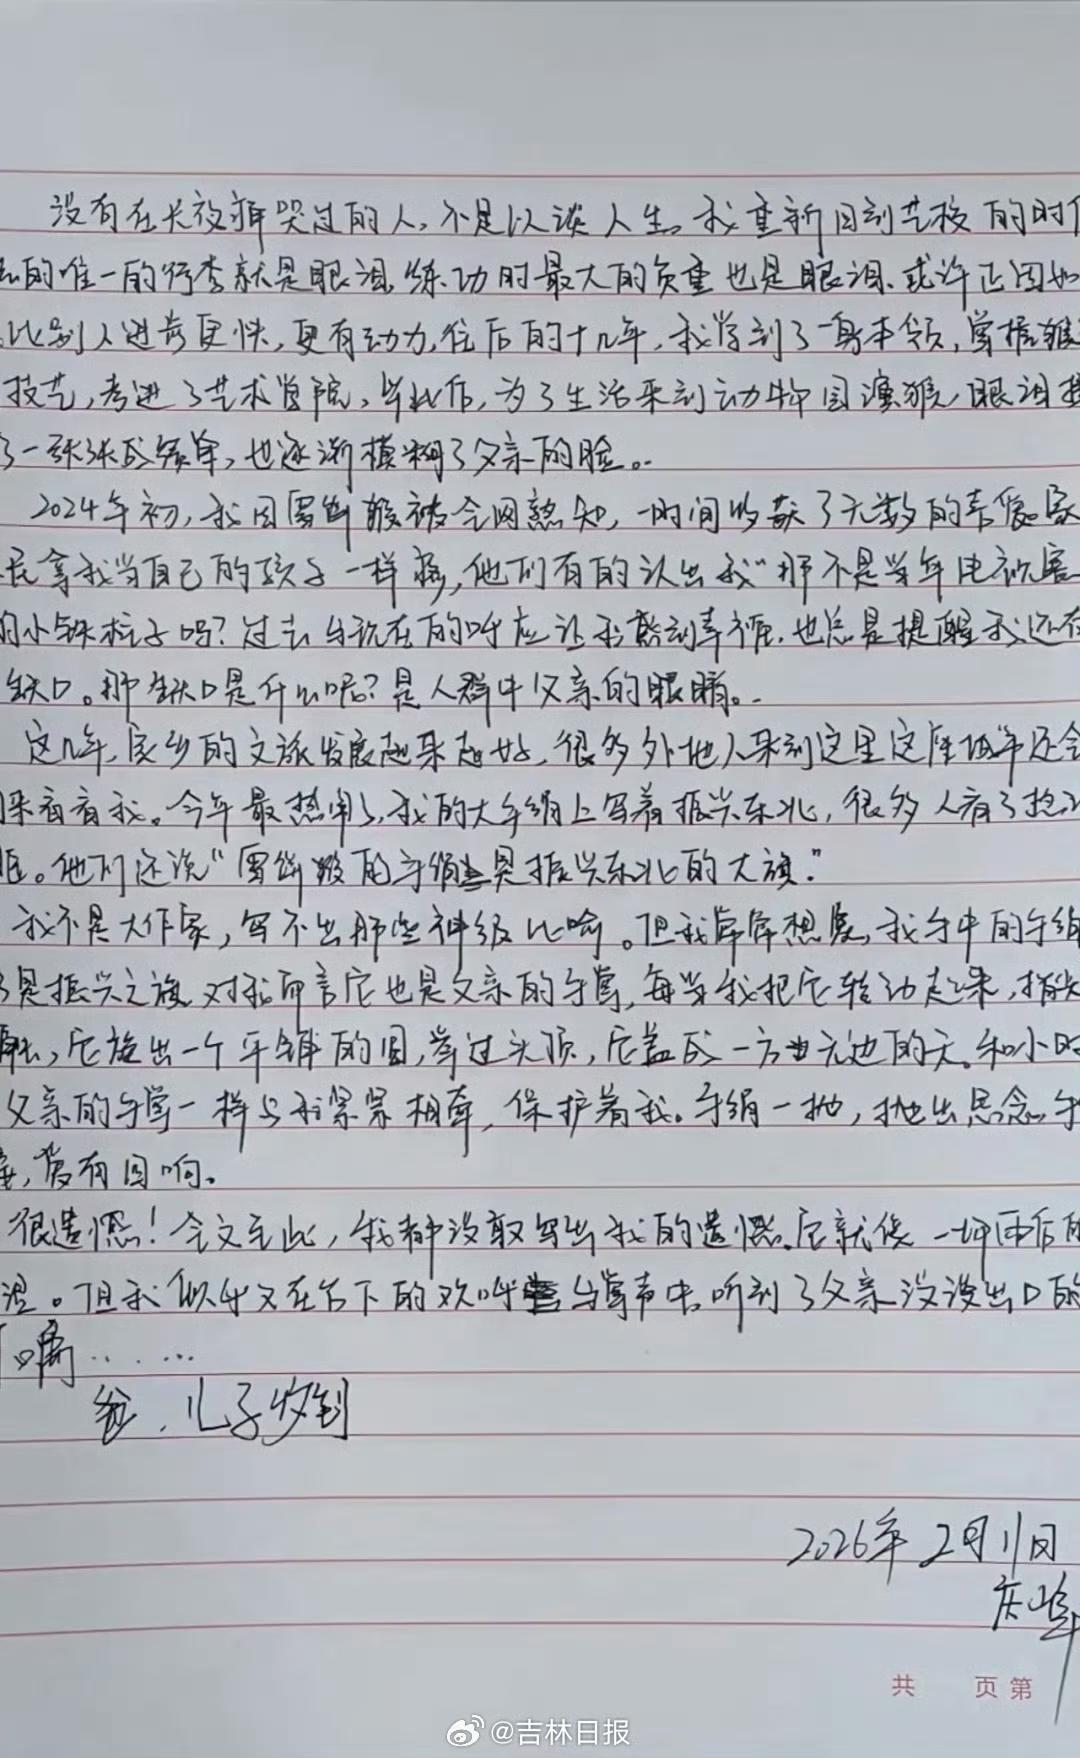 没有在长夜痛哭过的人,不足以谈人生。我重新回到艺校的时
的唯一的行李就是眼泪,练功时最大的负重也是眼泪,或许正因如
比别人进步更快,更有动力,往后的十几年,我学到了一身本领,掌握
技艺,考进了艺术学院,毕业后,为了生活来到动物园演猴,眼泪
了一张张成绩单,也逐渐模糊了父亲的脸。
2024年初,我因雪饼猴被全网熟知,一时间收获了无数的喜爱,
拿我当自己的孩子一样疼,他们有的认出我"那不是当年电视
的小铁柱子吗?过去与现在的呼应让我感到幸福,也总是提醒我还有
缺口。那缺口是什么呢?是人群中父亲的眼睛。
这几年,家乡的文旅发展越来越好,很多外地人来到这里这座城市还会
来看看我。今年最热闹了,我的大手绢上写着振兴东北,很多人看了热
眶。他们还说"雪饼猴的手绢是振兴东北的大旗."
我不是大作家,写不出那些神级比喻。但我常常想是,我手中的手绢
是振兴之旗,对我而言它也是父亲的手掌,每当我把它转动起来,指尖
触,它旋出一个平铺的圆,举过头顶,它盖成一方无边的天。和小时
父亲的手掌一样与我紧紧相牵,保护着我。手绢一抛,抛出思念,
,皆有回响。
很遗憾!全文至此,我都没敢写出我的遗憾,它就像一场雨后的
湿。但我似乎又在台下的欢呼与掌声中,听到了父亲没说出口的
嘱......
爸,儿子收到
2026年2月11日
庆峰
共 页 第
@吉林日报